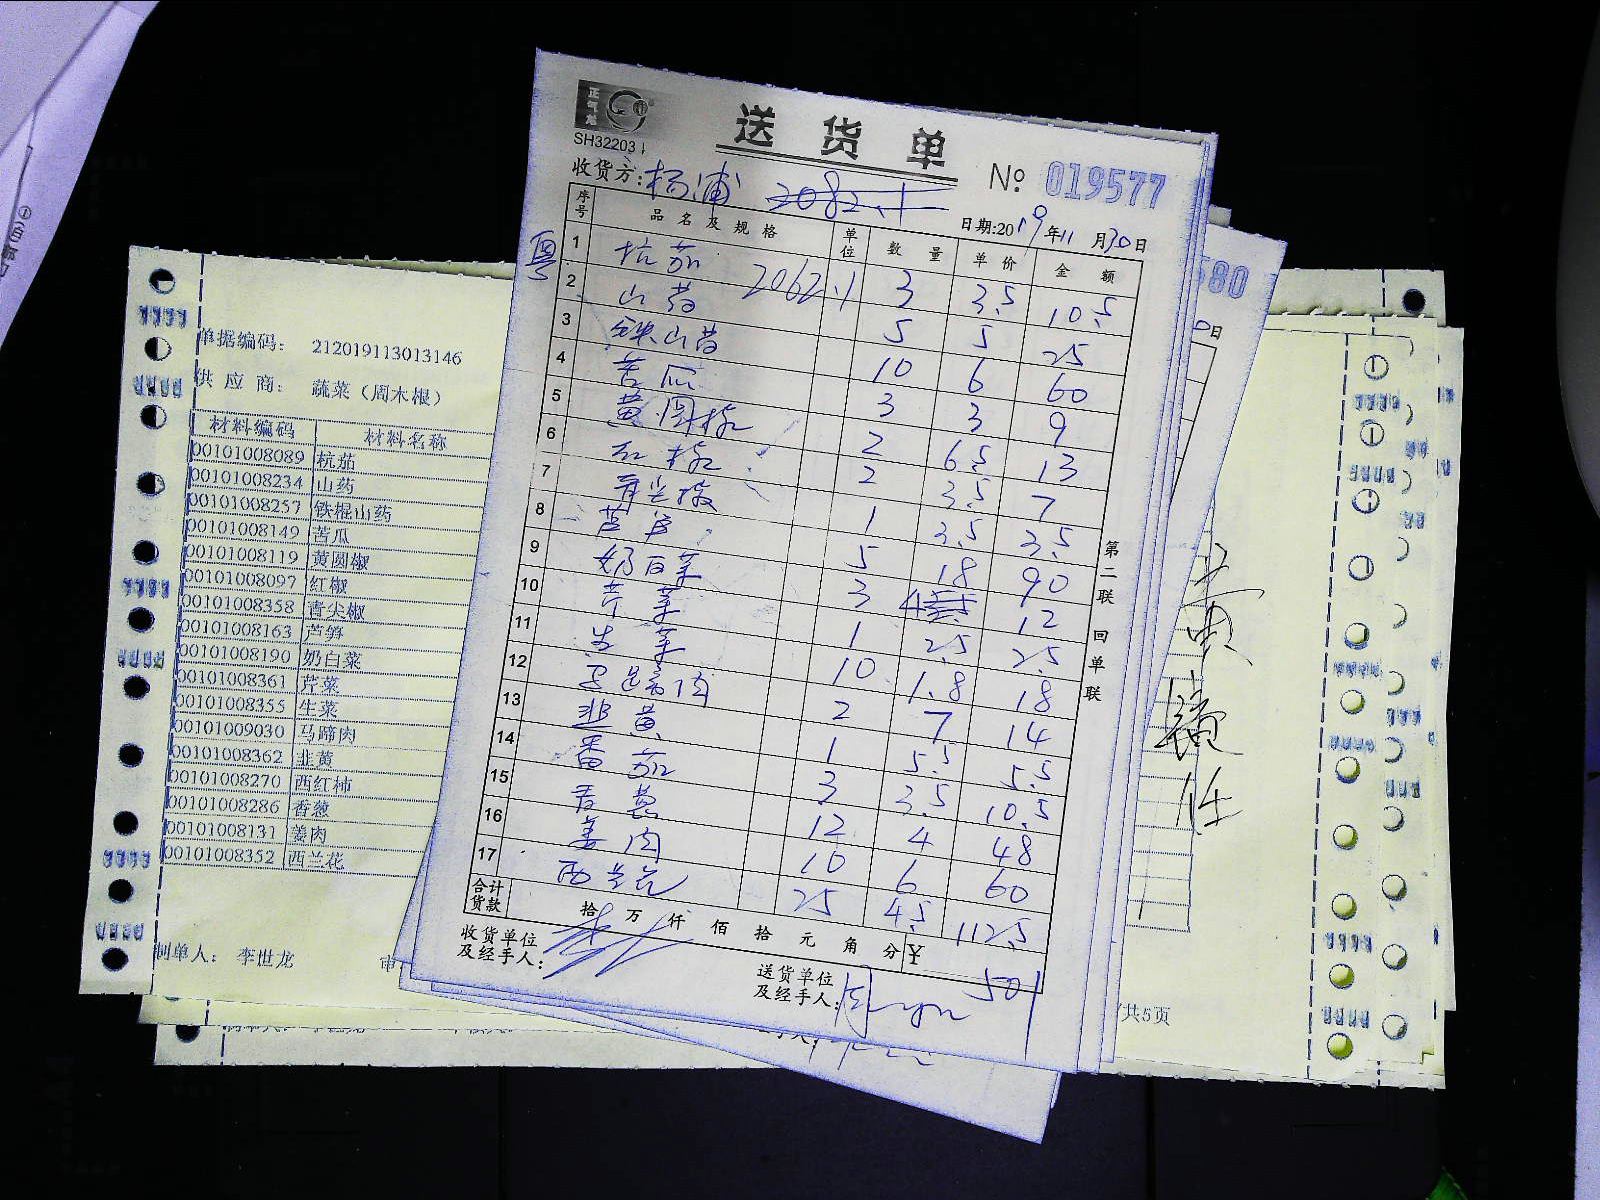 正气龙
SH32203
送货单
№ 019577
收货方: 杨浦 2082.1
日期:2019年11月30日
序号 品名及规格 单位 数量 单价 金额
粤
2062.1
1 杭茄 3 3.5 10.5
2 山药 5 5 25
3 铁山药 10 6 60
4 苦瓜 3 3 9
5 黄圆椒 2 6.5 13
6 红椒 2 3.5 7
7 青尖椒 1 3.5 3.5
8 芦笋 5 18 90
9 奶白菜 3 4 12
10 芹菜 1 2.5 2.5
11 生菜 10 1.8 18
12 马蹄肉 2 7 14
13 韭黄 1 5.5 5.5
14 番茄 3 3.5 10.5
15 香葱 12 4 48
16 姜肉 10 6 60
17 西兰花 25 4.5 112.5
合计货款 拾 万 仟 佰 拾 元 角 分 ¥ 501
收货单位及经手人:
送货单位及经手人:
第二联 回单联
580
日
单据编码: 212019113013146
供应商: 蔬菜（周木根）
材料编码 材料名称
00101008089 杭茄
00101008234 山药
00101008257 铁棍山药
00101008149 苦瓜
00101008119 黄圆椒
00101008097 红椒
00101008358 青尖椒
00101008163 芦笋
00101008190 奶白菜
00101008361 芹菜
00101008355 生菜
00101009030 马蹄肉
00101008362 韭黄
00101008270 西红柿
00101008286 香葱
00101008131 姜肉
00101008352 西兰花
制单人: 李世龙
审
/共5页